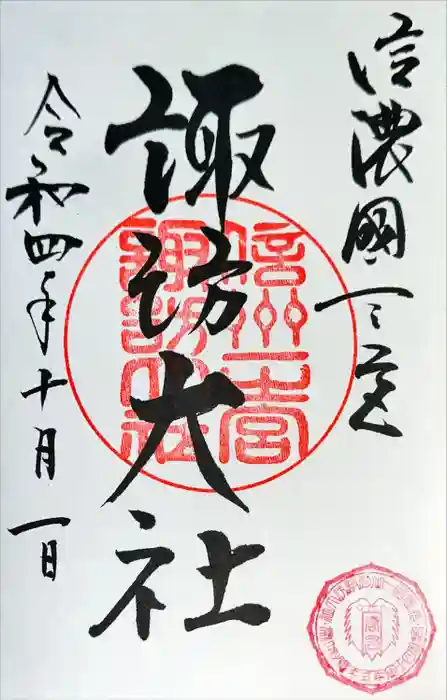 信濃國一之宮
諏訪大社
令和四年十月一日
信州一宮
諏訪大社